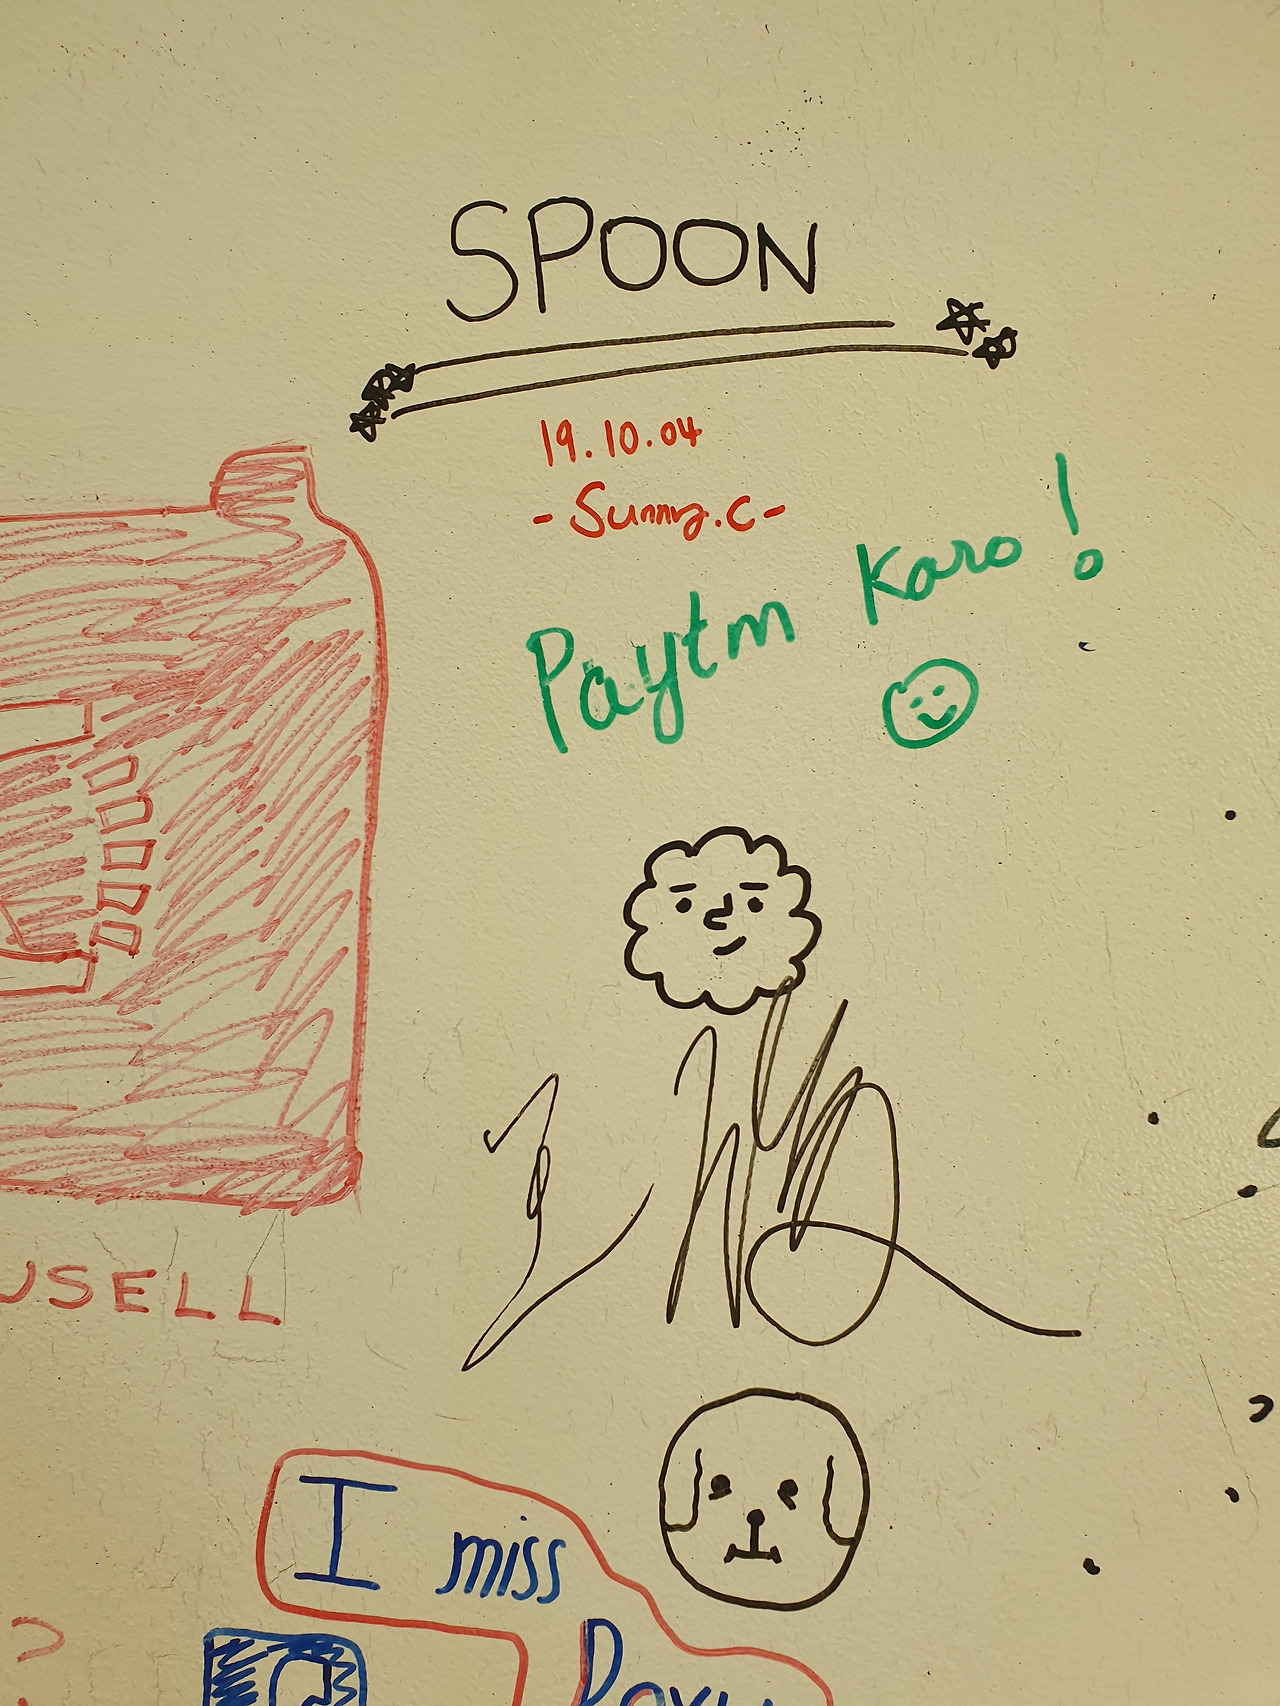 SPOON
19.10.04
- Sunny.C -
Paytm Karo!
USELL
I miss